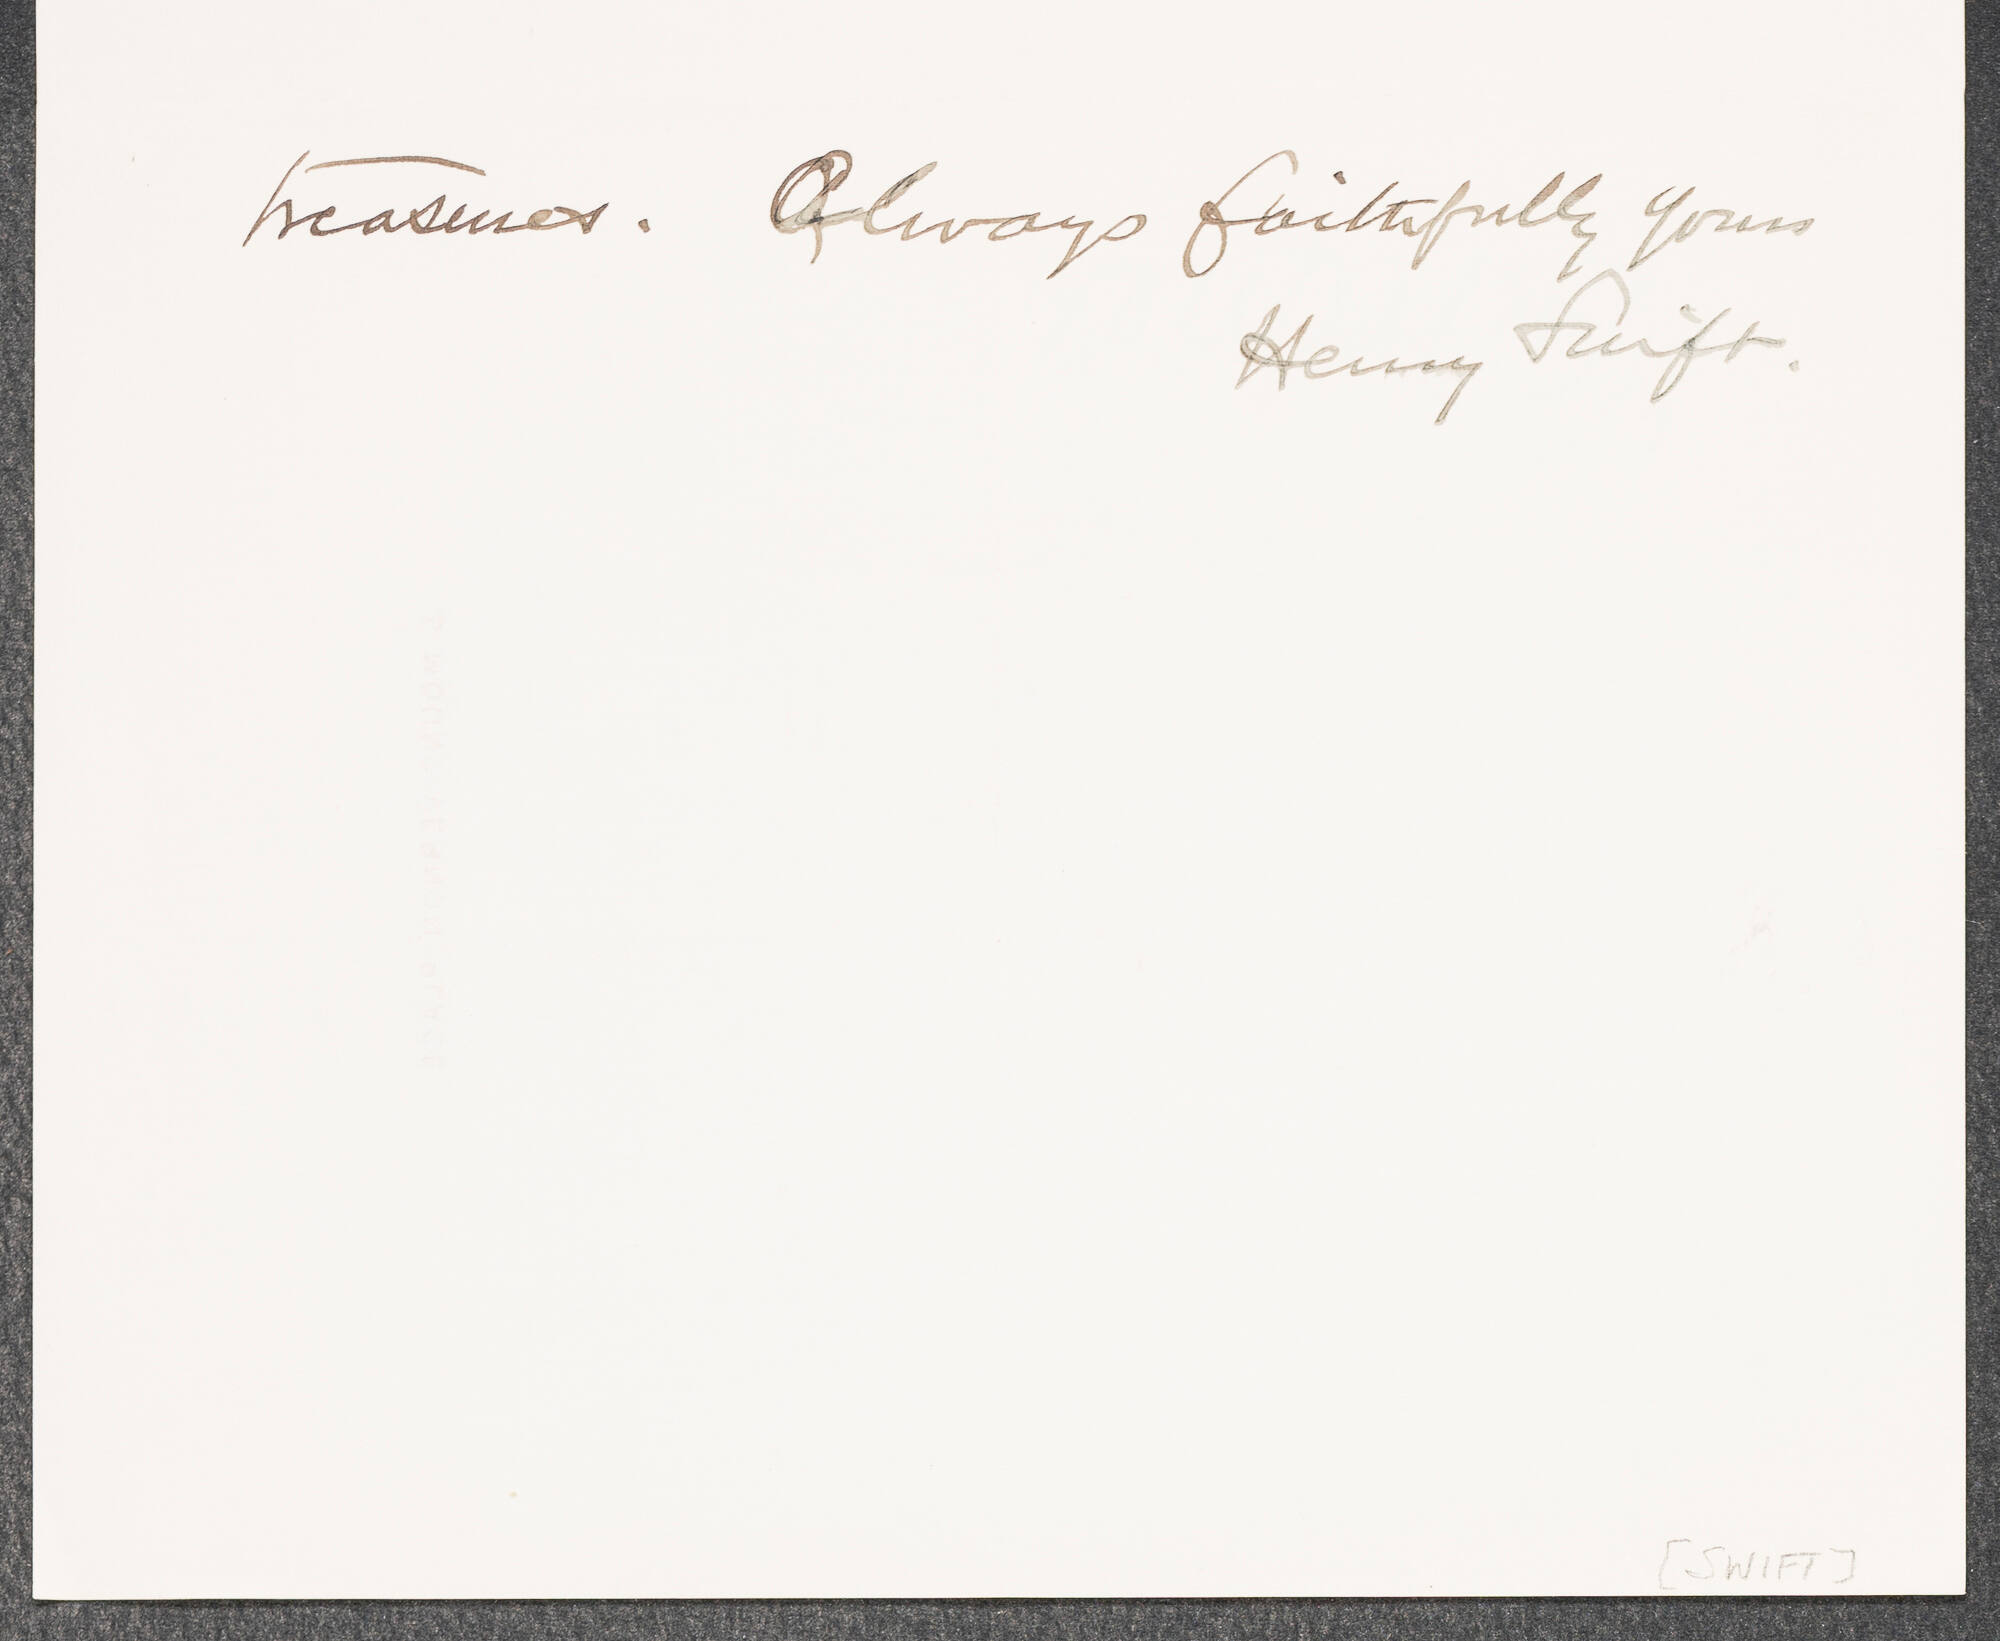 treasures. Always faithfully yours
Henry Swift.
[SWIFT]